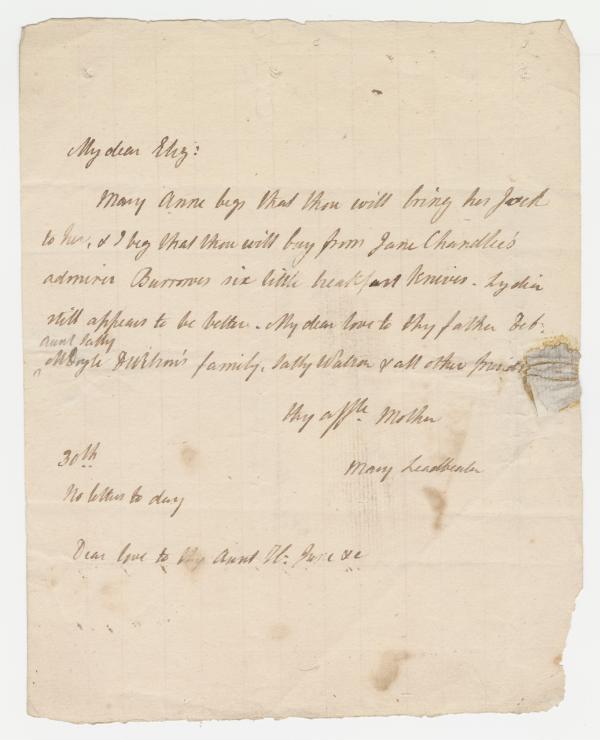 My dear Eliz:
Mary Anne begs that thou will bring her Jack
to her, & I beg that thou will buy from Jane Chandlee's
admirer Burrowes six little breakfast Knives. Lydia
still appears to be better. My dear love to thy father Deb:
aunt Sally
Doyle Wilson's family, Sally Walton & all other friends
thy affte Mother
Mary Leadbeater
30th
No letters to day
Dear love to thy Aunt Jane &c